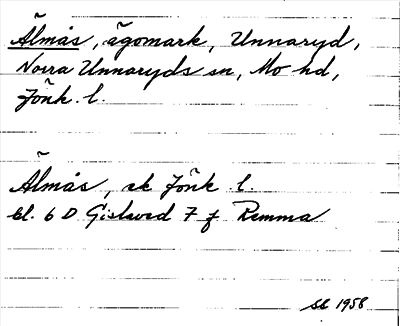 Älmås, ägomark, Unnaryd,
Norra Unnaryds sn, Mo hd,
Jönk. l.
Älmås, ek Jönk l.
bl. 6 D Gislaved 7 f Remma
SE 1958